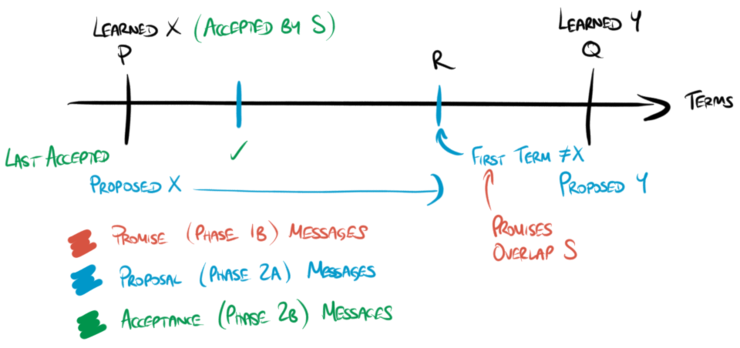 LEARNED X (ACCEPTED BY S)
P
LEARNED Y
Q
R
TERMS
LAST ACCEPTED
✓
FIRST TERM ≠X
PROPOSED X
PROPOSED Y
PROMISES
OVERLAP S
PROMISE (PHASE 1B) MESSAGES
PROPOSAL (PHASE 2A) MESSAGES
ACCEPTANCE (PHASE 2B) MESSAGES